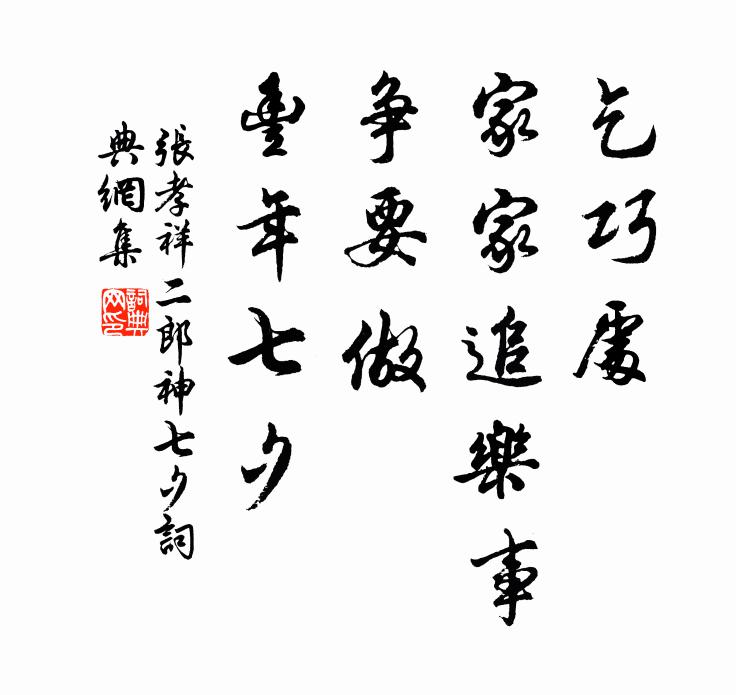 乞巧處
家家追樂事
爭要做
豐年七夕
張孝祥二郎神七夕詞
典網集
詞典網印